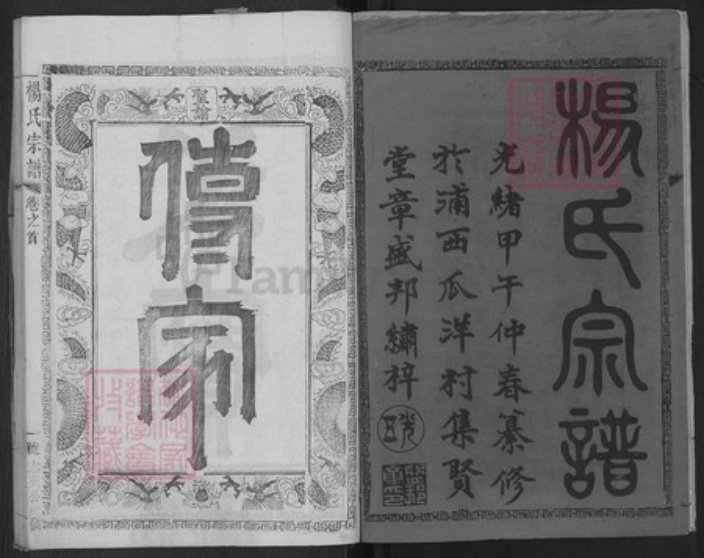 楊氏宗譜
光緒甲午仲春纂修
於浦西瓜洋村集賢
堂章盛邦繡梓
傳家
楊氏宗譜
卷之首
一
號